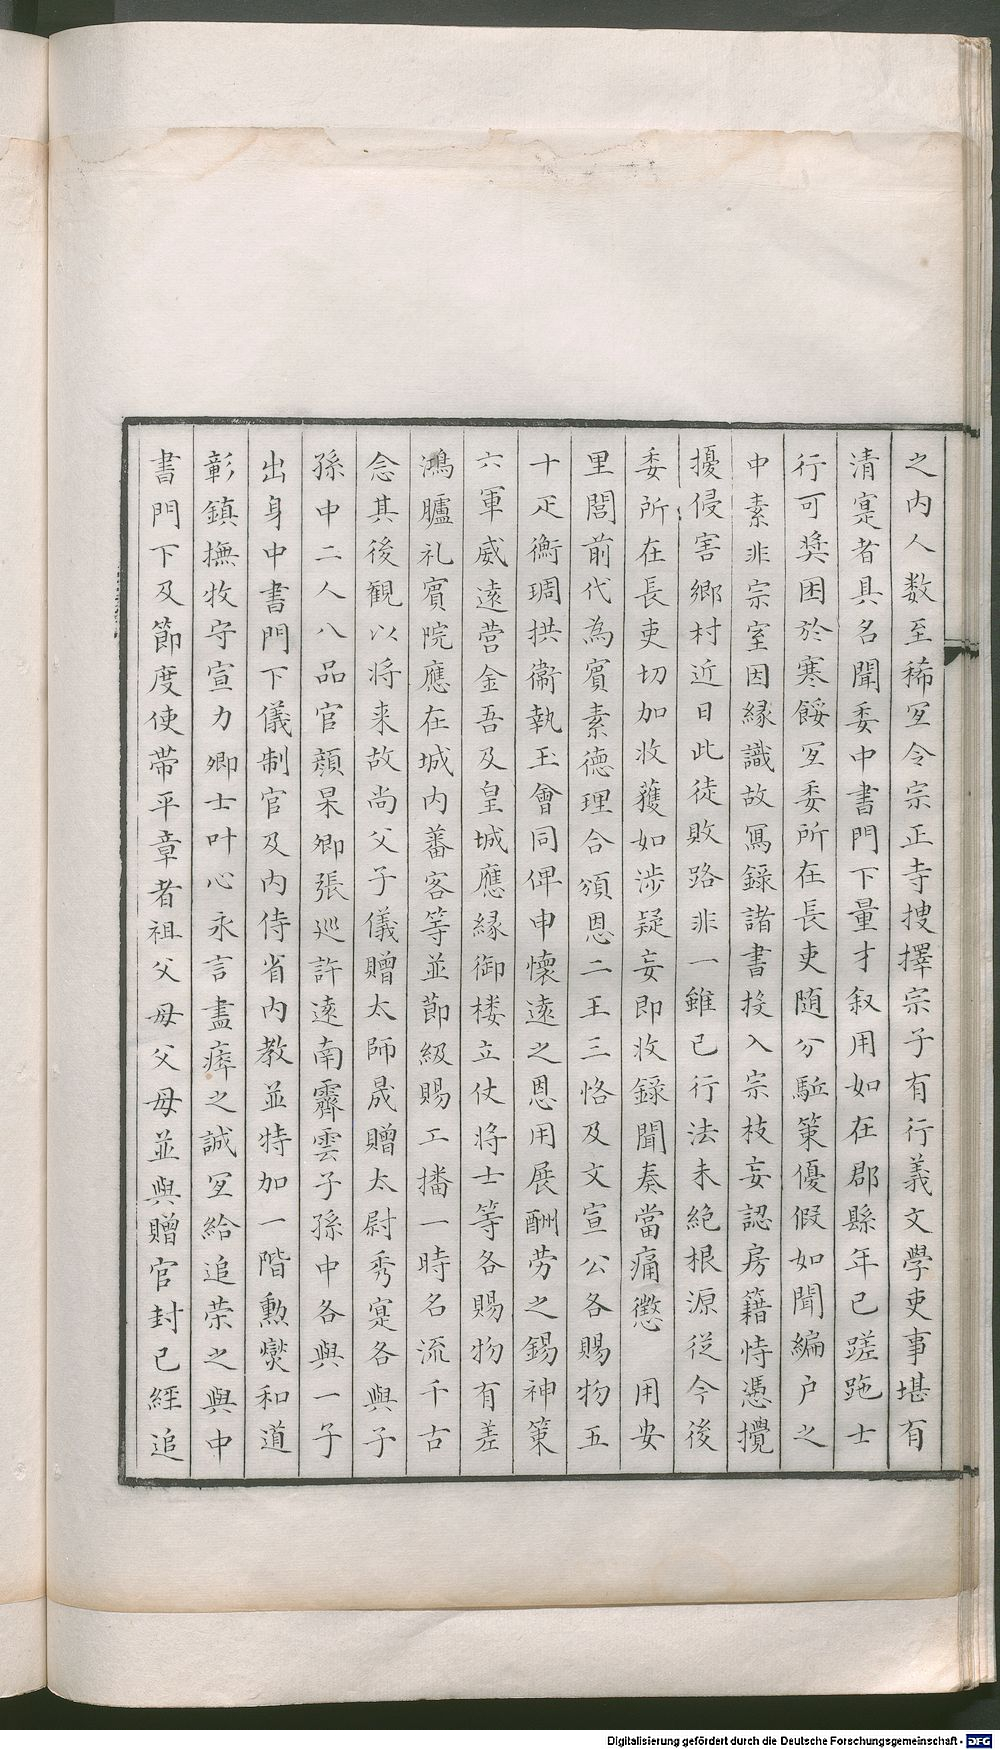 之内人数至稀宜令宗正寺捜擇宗子有行義文學吏事堪有
清寔者具名聞委中書門下量才叙用如在郡縣年已蹉跎士
行可奨困於寒餒宜委所在長吏随分駈策優假如聞編户之
中素非宗室因縁識故冩録諸書投入宗枝妄認房籍恃憑攪
擾侵害鄉村近日此徒敗路非一雖已行法未絶根源従今後
委所在長吏切加收獲如涉疑妄即收録聞奏當痛懲　用安
里閭前代為賓素德理合頒恩二王三恪及文宣公各賜物五
十疋衡琱拱衞執玉會同俾申懷遠之恩用展酬劳之錫神策
六軍威遠营金吾及皇城應縁御楼立仗将士等各賜物有差
鴻臚礼賓院應在城内蕃客等並節級賜工播一時名流千古
念其後観以将来故尚父子儀贈太師晟贈太尉秀寔各與子
孫中二人八品官顔杲卿張巡許遠南霽雲子孫中各與一子
出身中書門下儀制官及内侍省内教並特加一階勲爕和道
彰鎮撫牧守宣力卿士叶心永言盡瘁之誠宜給追荣之與中
書門下及節度使带平章者祖父母父母並與贈官封已經追
Digitalisierung gefördert durch die Deutsche Forschungsgemeinschaft - DFG